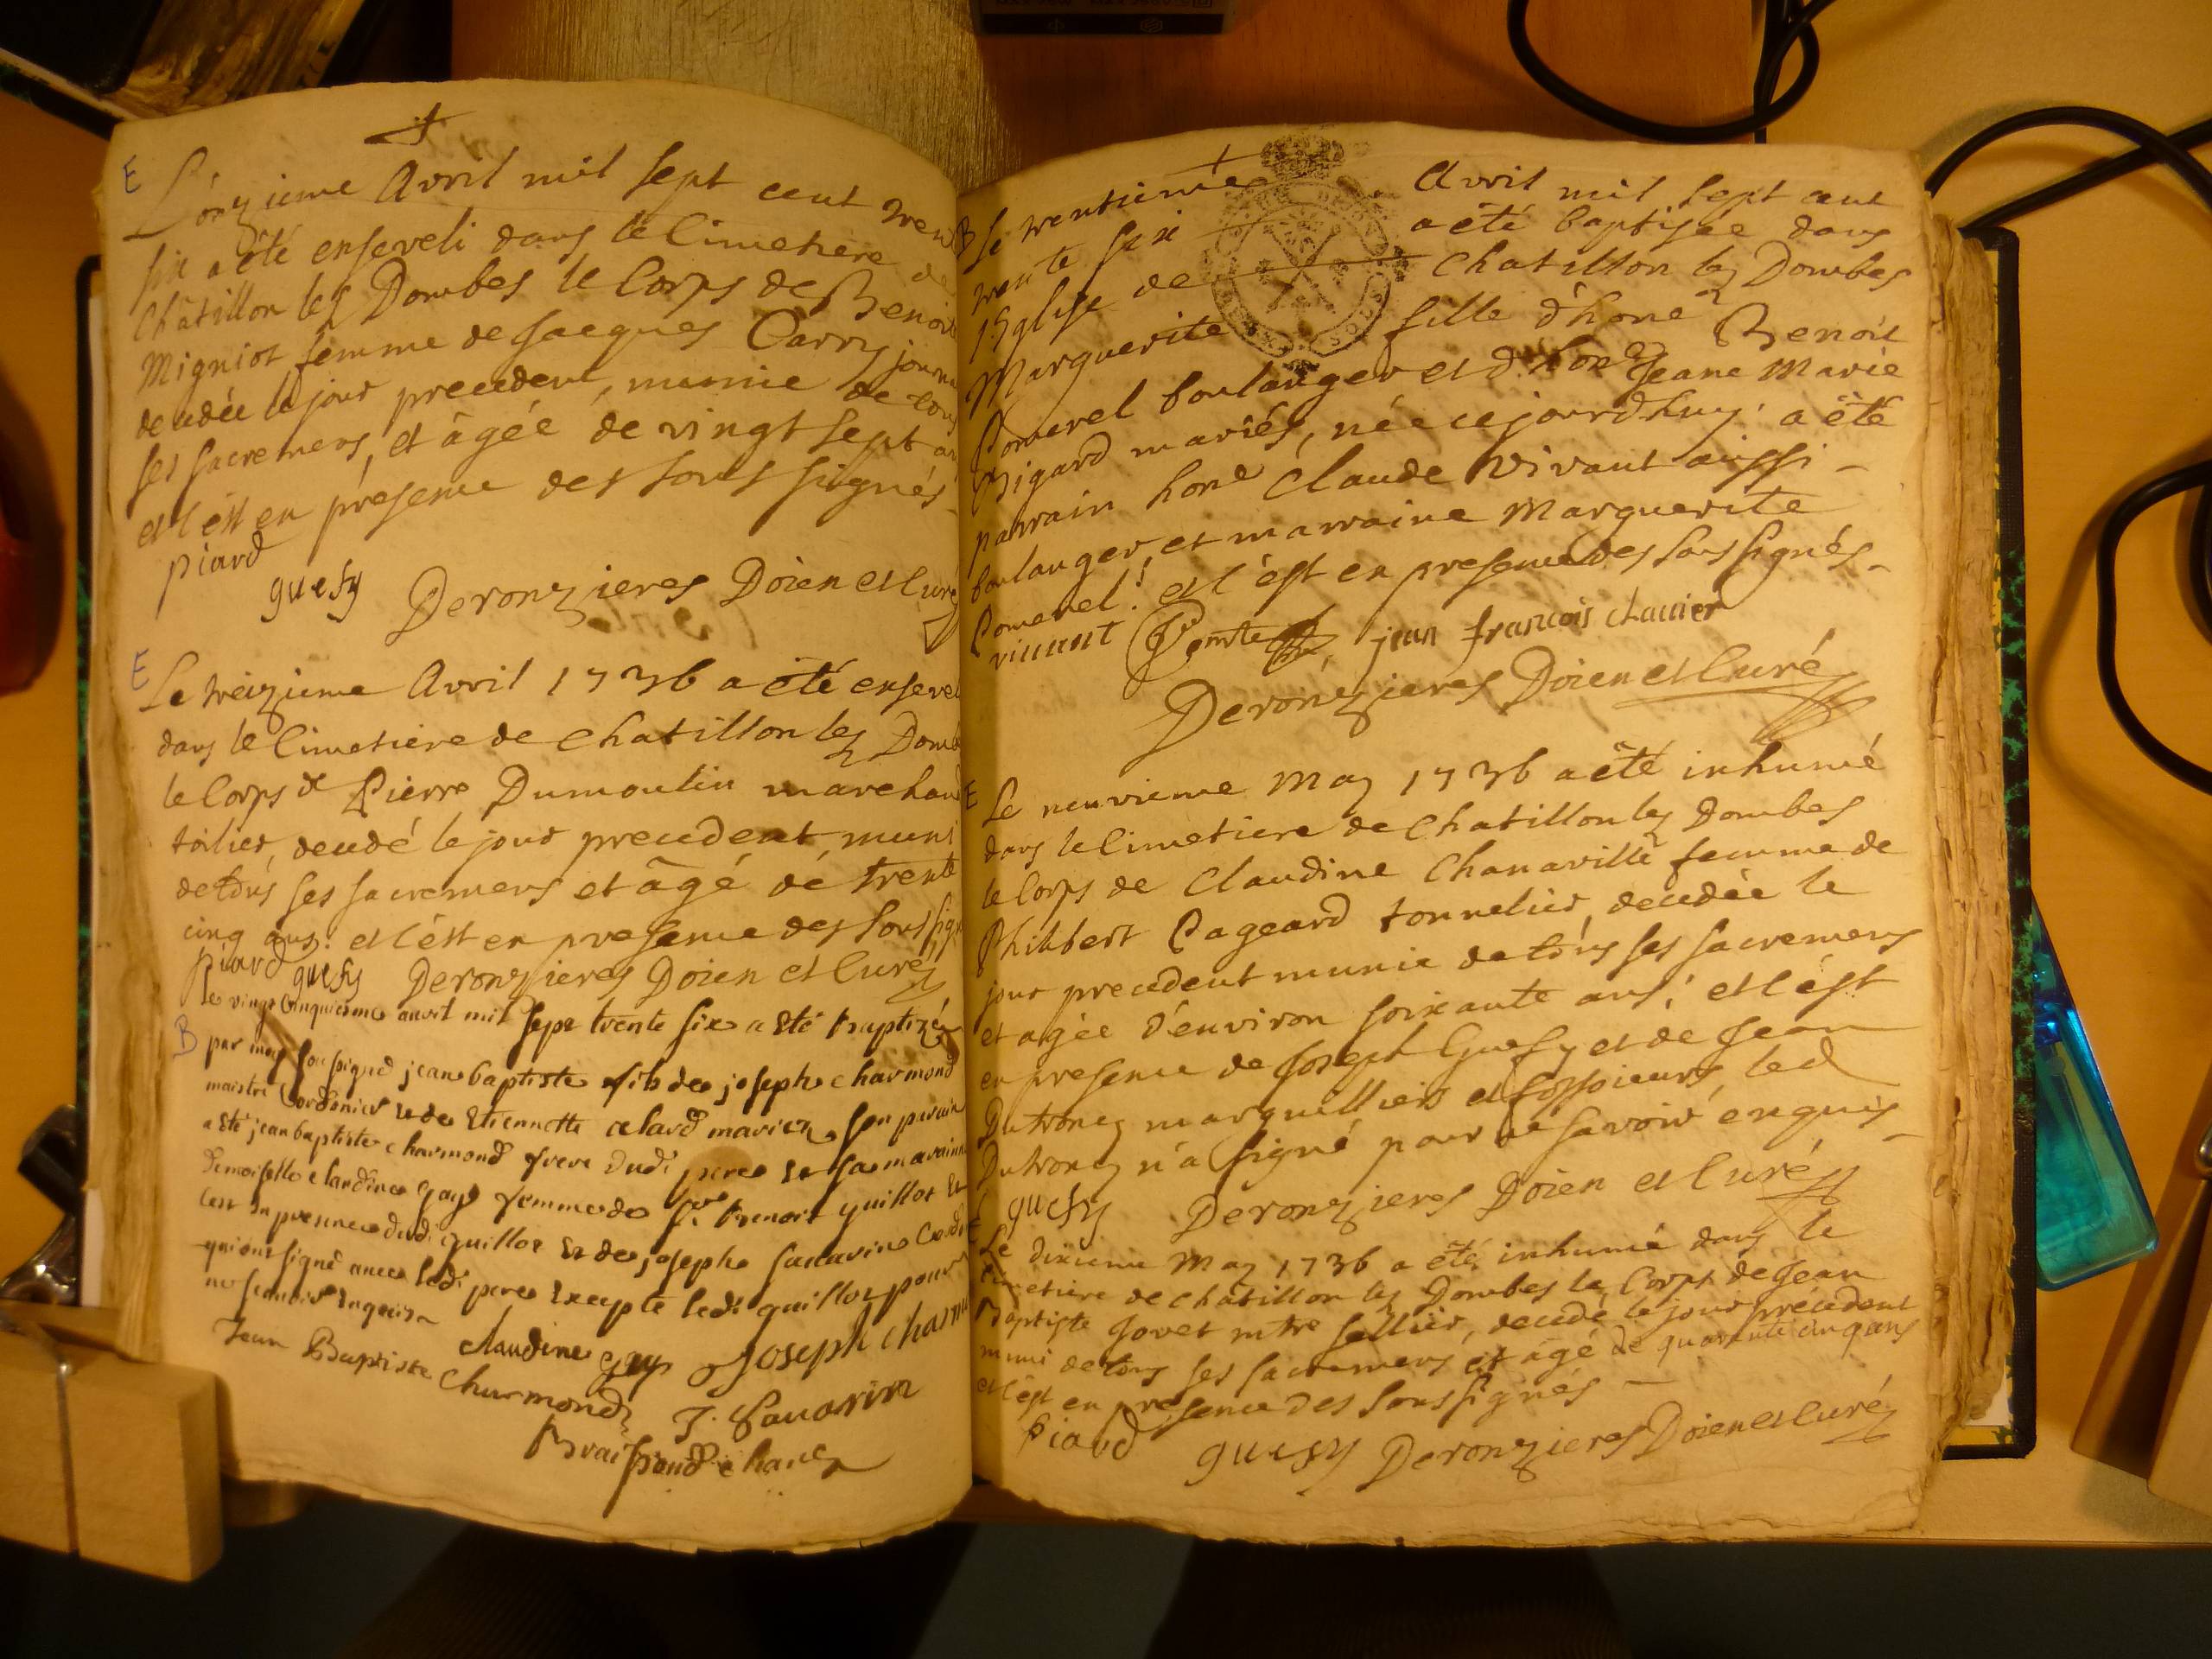 E
L'onzieme Avril mil sept cent tren
six a été enseveli dans le Cimetiere de
Châtillon lez Dombes le Corps de Benoite
Migniot, femme de Jacques Carry journa
decedée le jour precedent, munie de tous
ses sacremens, et âgée de vingt sept an
et c'est en présence des sous signés
piard
guesy
Deronzieres Doien et Curé
E
Le treizieme Avril 1736 a été enseve
dans le Cimetiere de Chatillon lez Domb
le Corps de Pierre Dumoulin marchand
toilier, decedé le jour precedent, muni
de tous ses sacremens et âgé de trente
cinq ans: et c'est en presence des sous sign
piard guesy Deronzieres Doien et Curé
B
Le vingt cinquiesme avril mil sept trente six a esté baptizé
par moy sousigné jean baptiste fils de joseph charmond
maistre Cordonier et de Etiennette celard mariez son parain
a esté jean baptiste charmond frere dudi pere et sa maraine
demoiselle claudine gay femme de sr. benoit guillot et
cest en presence dudi guillot et de joseph savarin
qui ont signé avec ledi pere excepté ledi guillot pour
ne scavoir enquis
claudine gay Joseph charmond
Jean Baptiste Charmond
J. Savarin
B
Le trentieme Avril mil sept cent
trente six a été baptisée dans
l'Eglise de Chatillon lez Dombes
Marguerite fille d'hone Benoit
Pomerel boulanger et d'hone Jeane Marie
Bigard mariés, née ce jourd'huy: a été
parrain hone Claude Vivant aussi
boulanger, et marraine Marguerite
Pomerel: et c'est en presence des sous signés
vincent Comte jean francois chavier
Deronzieres Doien et Curé
E
Le neuvieme May 1736 a été inhumé
dans le Cimetiere de Chatillon lez Dombes
le Corps de Claudine Chanaville femme de
Philibert Pageard tonnelier, decedée le
jour precedent munie de tous ses sacremens
et agée d'environ soixante ans; et c'est
en presence de Joseph Guesy et de Jean
Dutroncy marguilliers et fossoieurs, led
Dutroncy n'a signé pour ne savoir enquis
guesy Deronzieres Doien et Curé
E
Le dixieme May 1736 a été inhumé dans le
Cimetiere de Châtillon lez Dombes le Corps de Jean
Baptiste Jovet mtre sellier, decedé le jour précedent
muni de tous ses sacremens et âgé de quarante cinq ans
et c'est en presence des sous signés
Piard guesy Deronzieres Doien et Curé